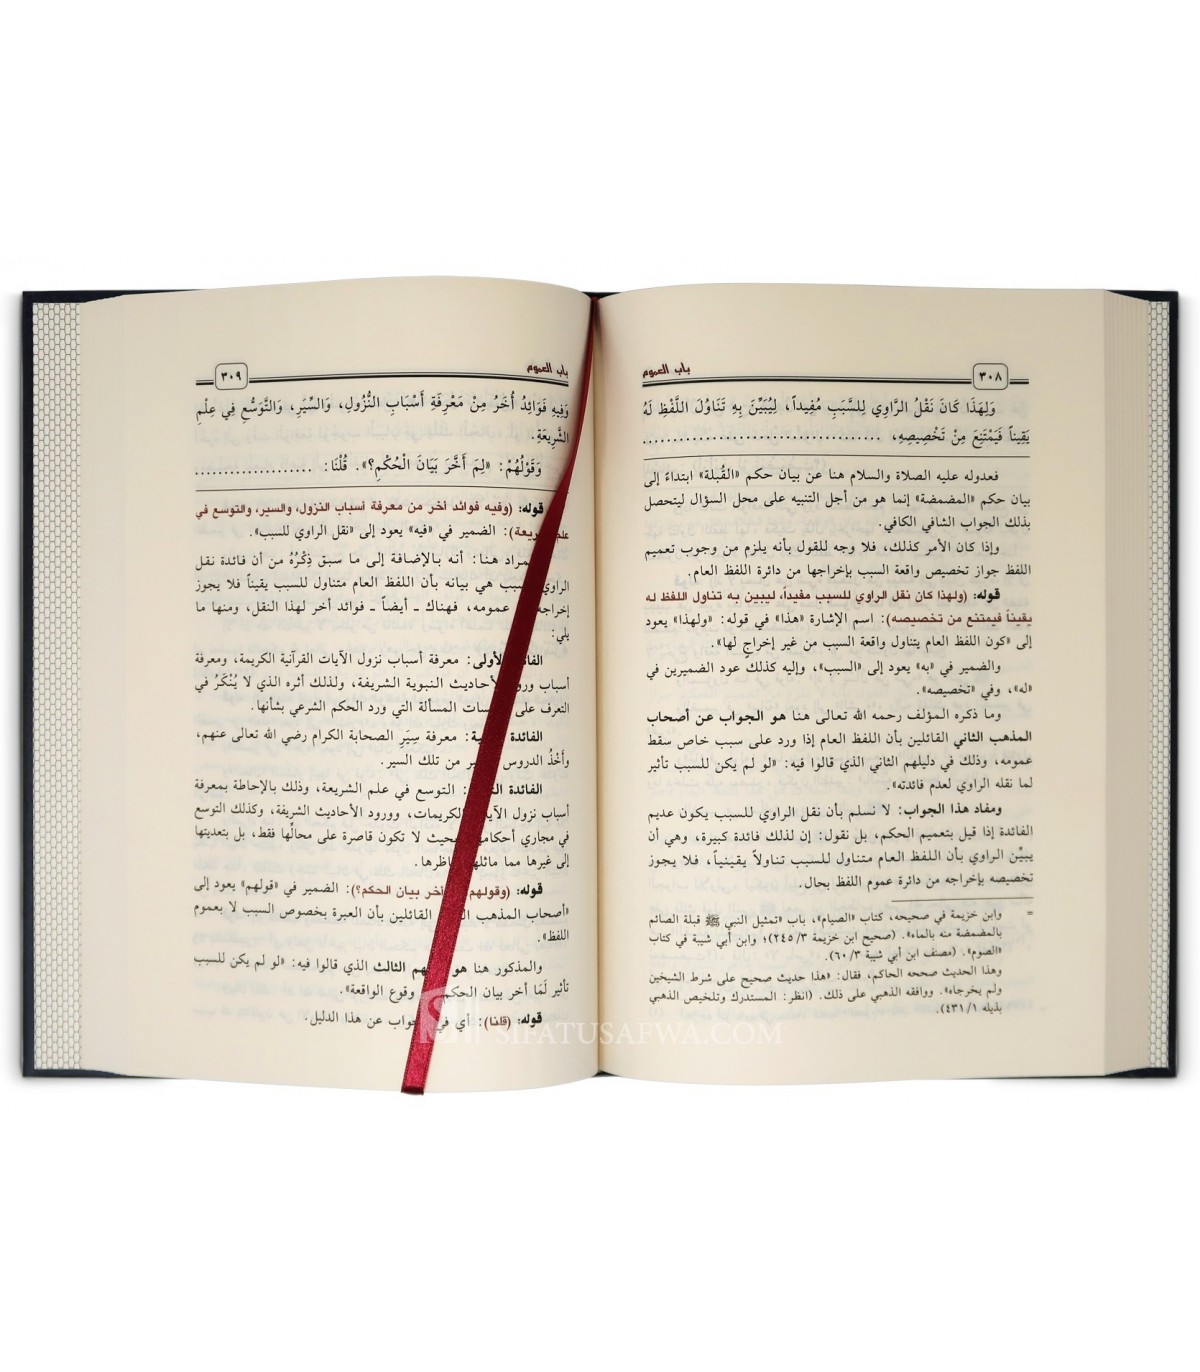 باب العموم
٣٠٨
وَلِهَذَا كَانَ نَقْلُ الرَّاوِي لِلسَّبَبِ مُفِيداً، لِيُبَيِّنَ بِهِ تَنَاوُلَ اللَّفْظِ لَهُ
يَقِيناً فَيَمْتَنِعَ مِنْ تَخْصِيصِهِ، ....................................
فعدوله عليه الصلاة والسلام هنا عن بيان حكم «القُبلة» ابتداءً إلى
بيان حكم «المضمضة» إنما هو من أجل التنبيه على محل السؤال ليتحصل
بذلك الجواب الشافي الكافي.
وإذا كان الأمر كذلك، فلا وجه للقول بأنه يلزم من وجوب تعميم
اللفظ جواز تخصيص واقعة السبب بإخراجها من دائرة اللفظ العام.
قوله: (ولهذا كان نقل الراوي للسبب مفيداً، ليبين به تناول اللفظ له
يقيناً فيمتنع من تخصيصه): اسم الإشارة «هذا» في قوله: «ولهذا» يعود
إلى «كون اللفظ العام يتناول واقعة السبب من غير إخراجٍ لها».
والضمير في «به» يعود إلى «السبب»، وإليه كذلك عود الضميرين في
«له»، وفي «تخصيصه».
وما ذكره المؤلف رحمه الله تعالى هنا هو الجواب عن أصحاب
المذهب الثاني القائلين بأن اللفظ العام إذا ورد على سبب خاص سقط
عمومه، وذلك في دليلهم الثاني الذي قالوا فيه: «لو لم يكن للسبب تأثير
لما نقله الراوي لعدم فائدته».
ومفاد هذا الجواب: لا نسلم بأن نقل الراوي للسبب يكون عديم
الفائدة إذا قيل بتعميم الحكم، بل نقول: إن لذلك فائدة كبيرة، وهي أن
يبيِّن الراوي بأن اللفظ العام متناول للسبب تناولاً يقينياً، فلا يجوز
تخصيصه بإخراجه من دائرة عموم اللفظ بحال.
= وابن خزيمة في صحيحه، كتاب «الصيام»، باب «تمثيل النبي ﷺ قبلة الصائم
بالمضمضة منه بالماء». (صحيح ابن خزيمة ٢٤٥/٣)؛ وابن أبي شيبة في كتاب
«الصوم». (مصنف ابن أبي شيبة ٦٠/٣).
وهذا الحديث صححه الحاكم، فقال: «هذا حديث صحيح على شرط الشيخين
ولم يخرجاه». ووافقه الذهبي على ذلك. (انظر: المستدرك وتلخيص الذهبي
بذيله ٤٣١/١).
باب العموم
٣٠٩
وَفِيهِ فَوَائِدُ أُخَرُ مِنْ مَعْرِفَةِ أَسْبَابِ النُّزُولِ، وَالسِّيَرِ، وَالتَّوَسُّعِ فِي عِلْمِ
الشَّرِيعَةِ.
وَقَوْلُهُمْ: «لِمَ أَخَّرَ بَيَانَ الْحُكْمِ؟». قُلْنَا: ...................
قوله: (وفيه فوائد أخر من معرفة أسباب النزول، والسير، والتوسع في
علم الشريعة): الضمير في «فيه» يعود إلى «نقل الراوي للسبب».
والمراد هنا: أنه بالإضافة إلى ما سبق ذِكْرُهُ من أن فائدة نقل
الراوي للسبب هي بيانه بأن اللفظ العام متناول للسبب يقيناً فلا يجوز
إخراجه عمومه، فهناك ـ أيضاً ـ فوائد أخر لهذا النقل، ومنها ما
يلي:
الفائدة الأولى: معرفة أسباب نزول الآيات القرآنية الكريمة، ومعرفة
أسباب ورود الأحاديث النبوية الشريفة، ولذلك أثره الذي لا يُنْكَرُ في
التعرف على ملابسات المسألة التي ورد الحكم الشرعي بشأنها.
الفائدة الثانية: معرفة سِيَرِ الصحابة الكرام رضي الله تعالى عنهم،
وأَخْذُ الدروس من تلك السير.
الفائدة الثالثة: التوسع في علم الشريعة، وذلك بالإحاطة بمعرفة
أسباب نزول الآيات الكريمات، وورود الأحاديث الشريفة، وكذلك التوسع
في مجاري أحكامها بحيث لا تكون قاصرة على محالِّها فقط، بل بتعديتها
إلى غيرها مما ماثلها
قوله: (وقولهم: لم أخر بيان الحكم؟): الضمير في «قولهم» يعود إلى
«أصحاب المذهب القائلين بأن العبرة بخصوص السبب لا بعموم
اللفظ».
والمذكور هنا هو دليلهم الثالث الذي قالوا فيه: «لو لم يكن للسبب
تأثير لَمَا أخر بيان الحكم وقوع الواقعة».
قوله: (قلنا): أي في الجواب عن هذا الدليل.
SIFATUSAFWA.COM